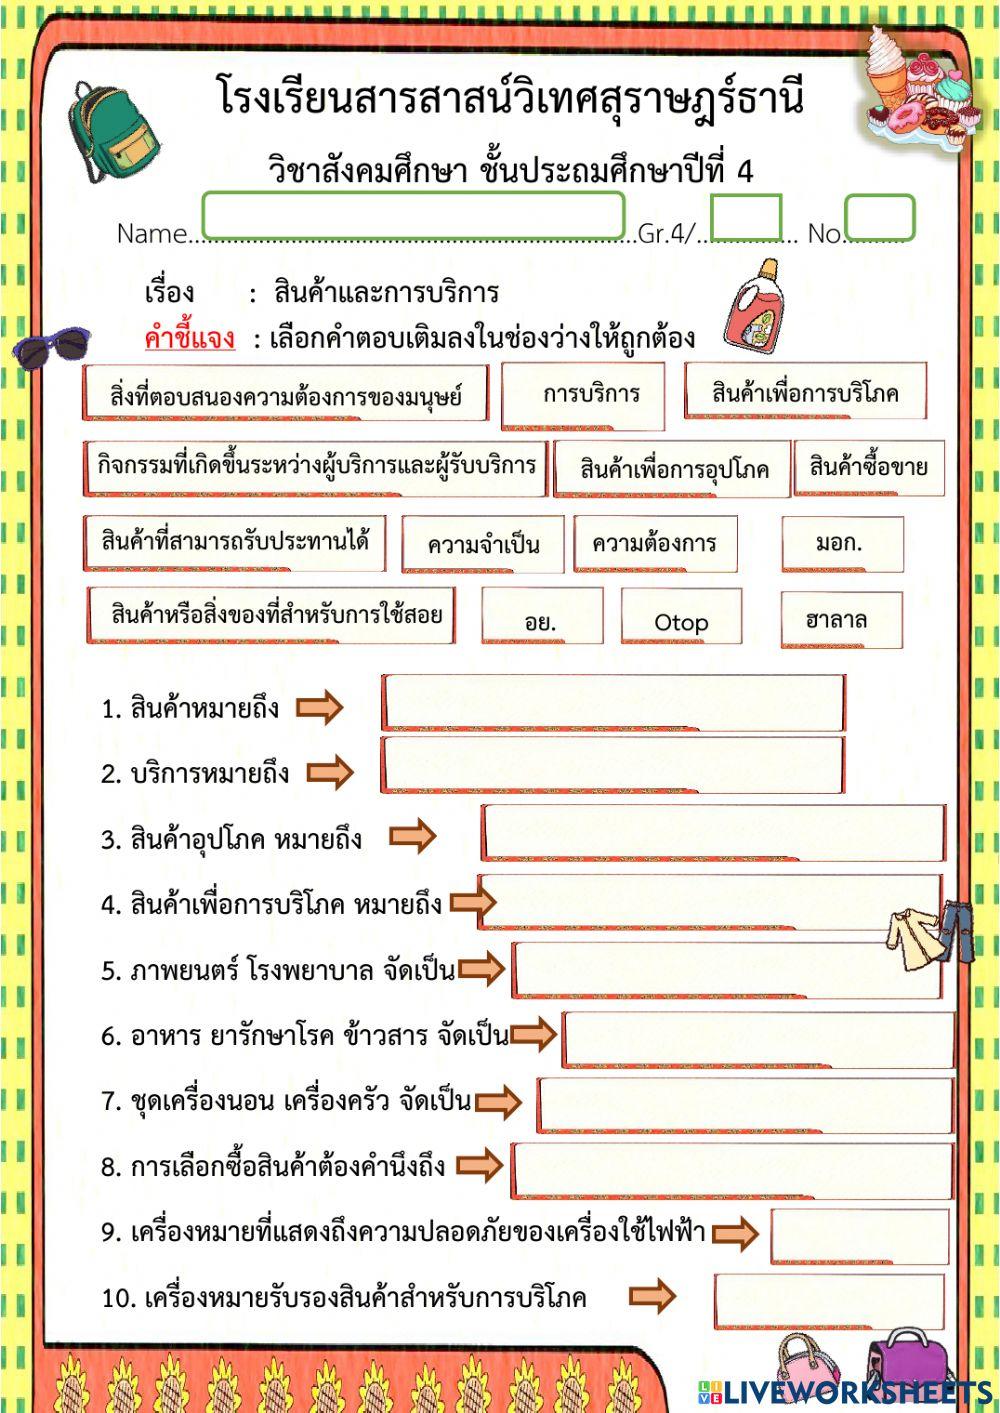 โรงเรียนสารสาสน์วิเทศสุราษฎร์ธานี
วิชาสังคมศึกษา ชั้นประถมศึกษาปีที่ 4
Name..........Gr.4/.......... No..........
เรื่อง : สินค้าและการบริการ
คำชี้แจง : เลือกคำตอบเติมลงในช่องว่างให้ถูกต้อง
สิ่งที่ตอบสนองความต้องการของมนุษย์ การบริการ สินค้าเพื่อการบริโภค
กิจกรรมที่เกิดขึ้นระหว่างผู้บริการและผู้รับบริการ สินค้าเพื่อการอุปโภค สินค้าซื้อขาย
สินค้าที่สามารถรับประทานได้ ความจำเป็น ความต้องการ มอก.
สินค้าหรือสิ่งของที่สำหรับการใช้สอย อย. Otop ฮาลาล
1. สินค้าหมายถึง
2. บริการหมายถึง
3. สินค้าอุปโภค หมายถึง
4. สินค้าเพื่อการบริโภค หมายถึง
5. ภาพยนตร์ โรงพยาบาล จัดเป็น
6. อาหาร ยารักษาโรค ข้าวสาร จัดเป็น
7. ชุดเครื่องนอน เครื่องครัว จัดเป็น
8. การเลือกซื้อสินค้าต้องคำนึงถึง
9. เครื่องหมายที่แสดงถึงความปลอดภัยของเครื่องใช้ไฟฟ้า
10. เครื่องหมายรับรองสินค้าสำหรับการบริโภค
LIVE LIVEWORKSHEETS